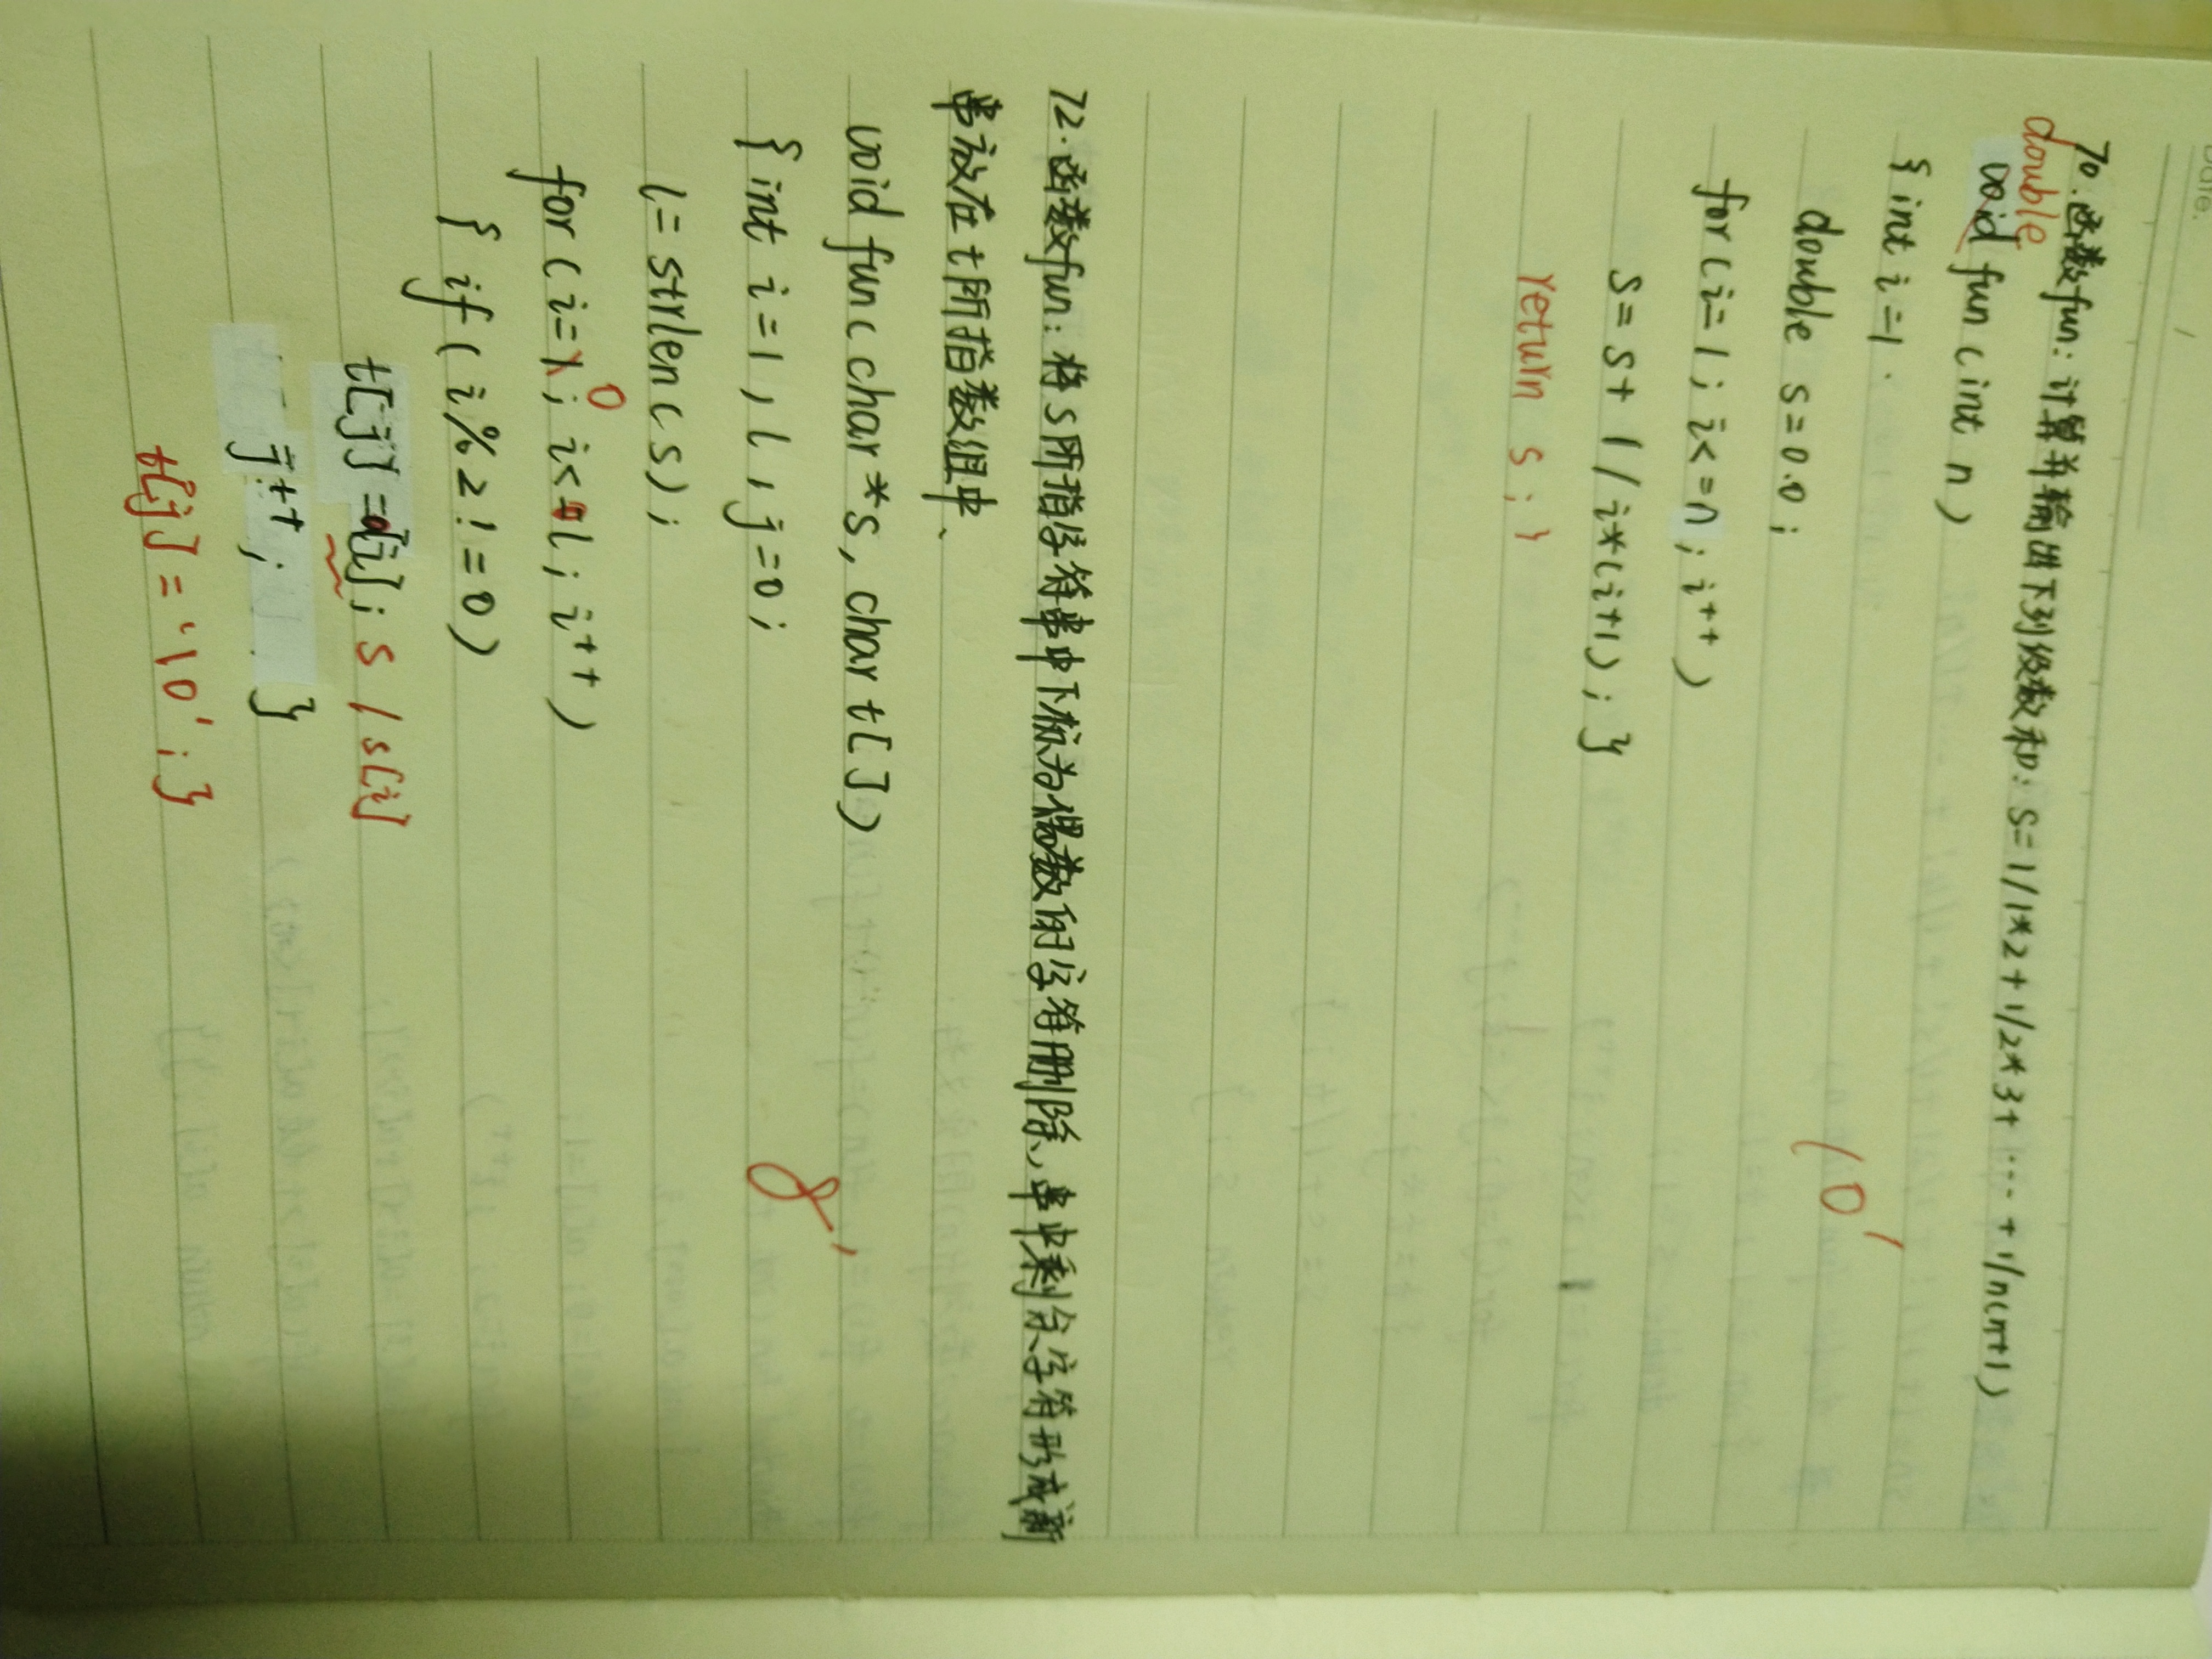 Date. /
70.函数fun:计算并输出下列级数和:S=1/1*2+1/2*3+…+1/n(n+1)
double
void fun(int n)
{int i=1.
double s=0.0;
10'
for(i=1;i<=n;i++)
s=s+1/i*(i+1);}
return s;}
72.函数fun:将s所指字符串中下标为偶数的字符删除,串中剩余字符形成新
串放在t所指数组中、
void fun(char*s,char t[])
8'
{int i=1,l,j=0;
l=strlen(s);
for(i=1;i<l;i++)
0
{if(i%2!=0)
t[j]=a[i]; s / s[i]
j++; }
t[j]='\0';}